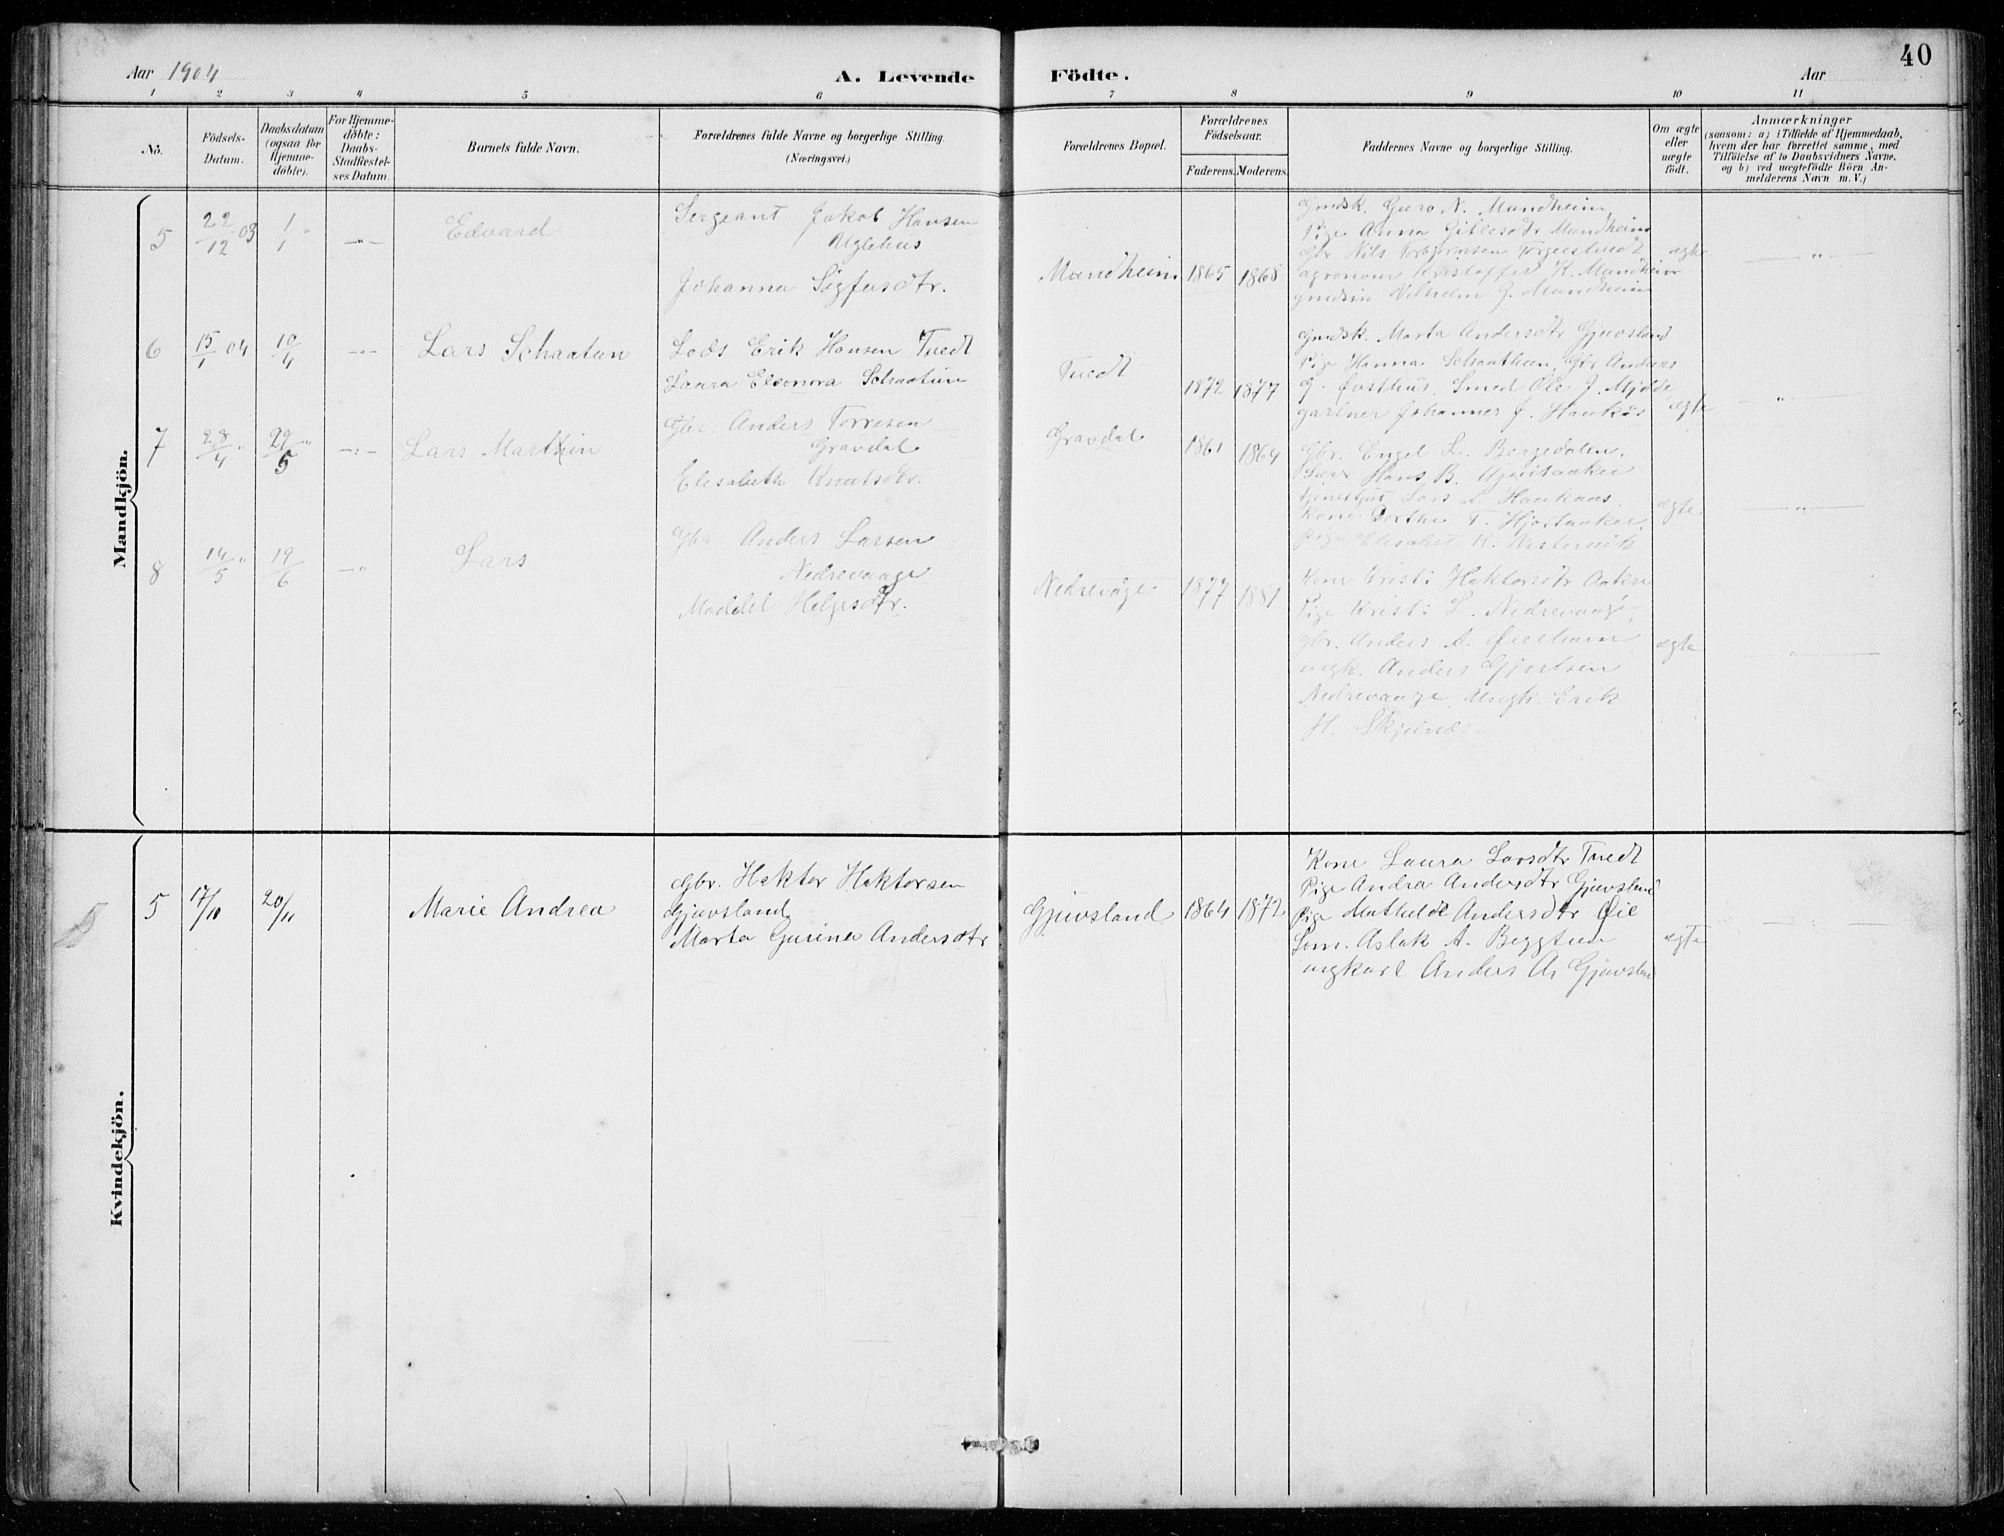 40
Aar 1904
A. Levende
Födte.
Aar
1 2 3 4 5 6 7 8 9 10 11
Nö.
Födsels-
Datum.
Daabsdatum
(ogsaa for
Hjemme-
döbte).
For Hjemme-
döbte:
Daabs-
Stadfæstel-
ses Datum.
Barnets fulde Navn.
Forældrenes fulde Navne og borgerlige Stilling.
(Næringsvei.)
Forældrenes Bopæl.
Forældrenes
Födselsaar.
Faderens. Moderens.
Faddernes Navne og borgerlige Stilling.
Om ægte
eller
uægte
födt.
Anmærkninger
(saasom: a) i Tilfælde af Hjemmedaab,
hvem der har forrettet samme, med
Tilföielse af to Daabsvidners Navne.
og b) ved uægtefödte Börn An-
melderens Navn m. V.)
Mandkjön.
5 22/12 03 1/1 " -"- Edvard
Sergeant Jakob Hansen
Uglehus
Johanna Sigfusdtr.
Mundheim 1865 1868
Gmdsk. Guro N. Mundheim,
Pige Anna Mundheim
Gbr. Nils Torbjørnsen
agronom Kristoffer K. Mundheim
Vilhelm J. Mundheim
ægte "
6 15/1 04 10/4 -"- Lars Schaatun
Lods Erik Hansen Tvedt
Laara Eleonora Schaatun
Tvedt 1872 1877
Gmdsk. Marta Andersdtr Gjuvsland
Pige Hanna Schaathun, Gbr Anders
G. Østhus, Smed Ole J. Mjelde,
gartner Johannes J. Haukås
ægte "
7 28/4 " 29/5 " -"- Lars Marthin
Gbr. Anders Torresen
Gravdal
Elisabeth Knutsdtr.
Gravdal 1861 1864
Gbr. Engel L. Bergedalen,
Hans B. Hjortaaker
Lars L. Haukaas,
Kone Dorthe T. Hjortaaker,
pige Elisabet K.
ægte "
8 14/5 " 19/6 -"- Lars
Gbr. Anders Larsen
Nedrevaage
Maddel Helgesdtr.
Nedrevåge 1877 1881
Kone Kristi Haktorsdtr Aakre
Pige Kristi L. Nedrevaage,
gbr. Anders A.
ungk. Anders Gjertsen
Nedrevaage, Ungk. Erik
H. Skjelnes.
ægte "
Kvindekjön.
5 5 17/10 20/11 Marie Andrea
Gbr. Haktor Haktorsen
Gjuvsland
Marta Gurine Andersdtr
Gjuvsland 1864 1872
Kone Laura Larsdtr Tvedt
Pige Andrea Andersdtr Gjuvsland
Pige Mathilde Andersdtr Øie
Aslak A. Beggtun
ungkarl Anders A. Gjuvsland
ægte